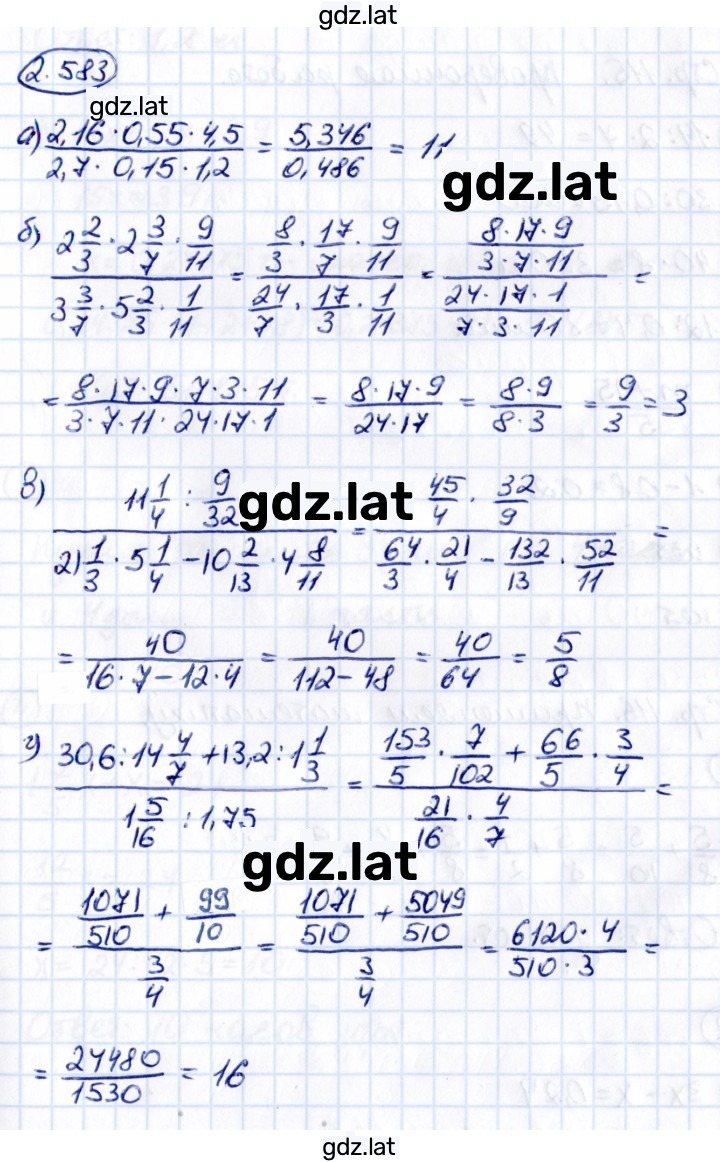 gdz.lat
2.583
gdz.lat
а) (2,16·0,55·4,5)/(2,7·0,15·1,2) = 5,346/0,486 = 11
gdz.lat
б) (2 2/3·2 3/7·9/11)/(3 3/7·5 2/3·1/11) = (8/3·17/7·9/11)/(24/7·17/3·1/11) = ((8·17·9)/(3·7·11))/((24·17·1)/(7·3·11)) =
= (8·17·9·7·3·11)/(3·7·11·24·17·1) = (8·17·9)/(24·17) = (8·9)/(8·3) = 9/3 = 3
в) (11 1/4 : 9/32)/(21 1/3·5 1/4 - 10 2/13·4 8/11) = (45/4·32/9)/(64/3·21/4 - 132/13·52/11) =
gdz.lat
= 40/(16·7-12·4) = 40/(112-48) = 40/64 = 5/8
г) (30,6:14 4/7+13,2:1 1/3)/(1 5/16 : 1,75) = (153/5·7/102 + 66/5·3/4)/(21/16·4/7) =
gdz.lat
= (1071/510 + 99/10)/(3/4) = (1071/510 + 5049/510)/(3/4) = (6120·4)/(510·3) =
= 24480/1530 = 16
gdz.lat